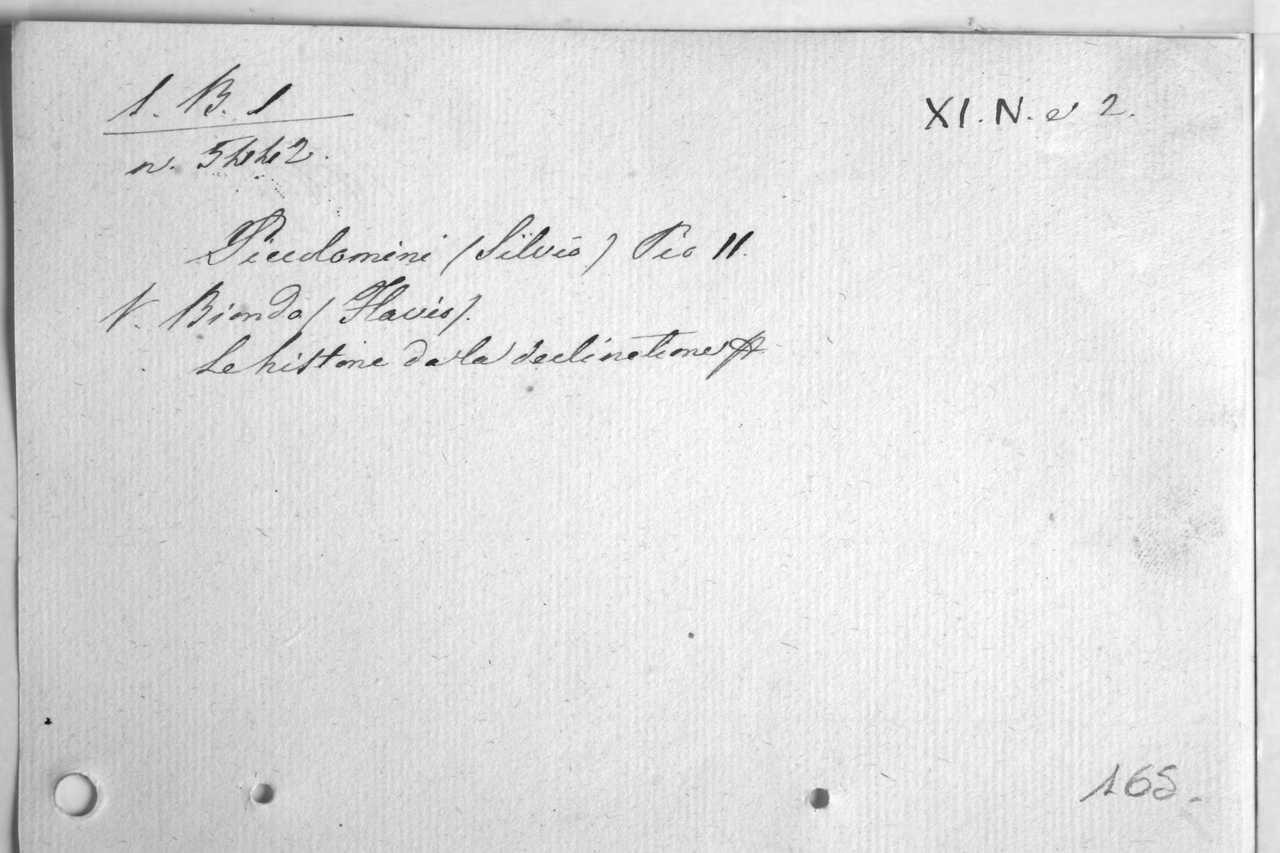 1. B. 1
XI. N. e 2.
n. 5442.
Piccolomini (Silvio) Pio II.
V. Biondo (Flavio).
Le historie da la declinatione
165.